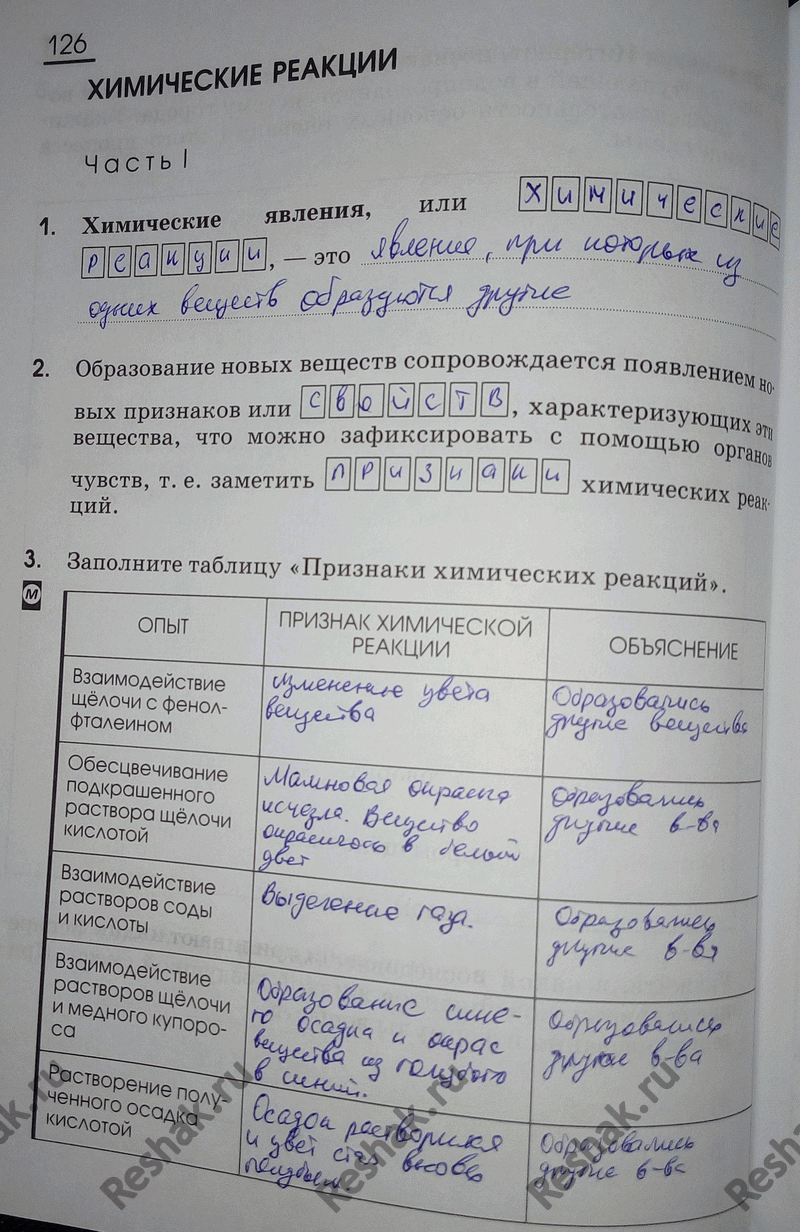 126
ХИМИЧЕСКИЕ РЕАКЦИИ
Часть I
1. Химические явления, или химические
реакции, — это явление, при которых из
одних веществ образуются другие
2. Образование новых веществ сопровождается появлением но-
вых признаков или свойств, характеризующих эти
вещества, что можно зафиксировать с помощью органов
чувств, т. е. заметить признаки химических реак-
ций.
3. Заполните таблицу «Признаки химических реакций».
М
ОПЫТ
ПРИЗНАК ХИМИЧЕСКОЙ
РЕАКЦИИ
ОБЪЯСНЕНИЕ
Взаимодействие
щёлочи с фенол-
фталеином
изменение цвета
вещества
Образовались
другие вещества
Обесцвечивание
подкрашенного
раствора щёлочи
кислотой
Малиновая окраска
исчезла. Вещество
окрасилось в белый
цвет
Образовались
другие в-ва
Взаимодействие
растворов соды
и кислоты
Выделение газа.
Образовались
другие в-ва
Взаимодействие
растворов щёлочи
и медного купоро-
са
Образование сине-
го осадка и окрас
вещества из голубого
в синий.
Образовались
другие в-ва
Растворение полу-
ченного осадка
кислотой
Осадок растворился
и цвет стал вновь
голубым.
Образовались
другие в-ва
Reshak.ru
Reshak.ru
Reshak.ru
Reshak.ru
Reshak.ru